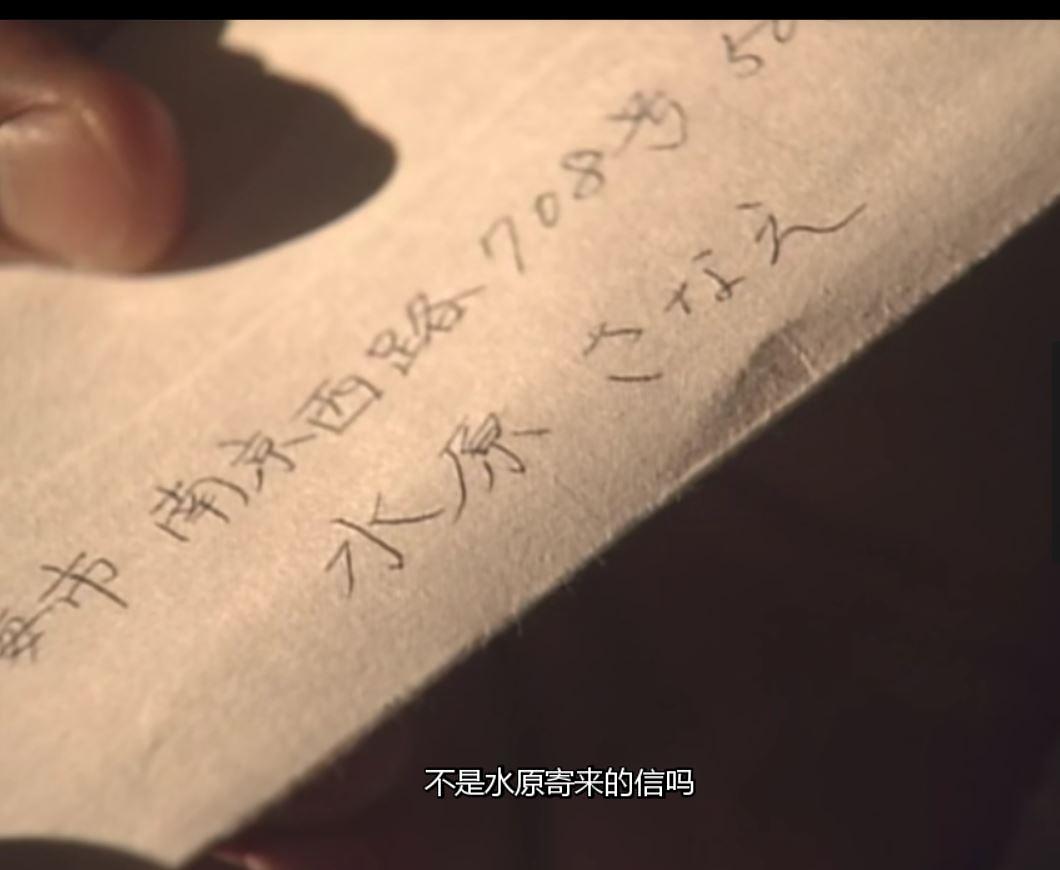 海市 南京西路 708号 50
水原 さなえ
不是水原寄来的信吗